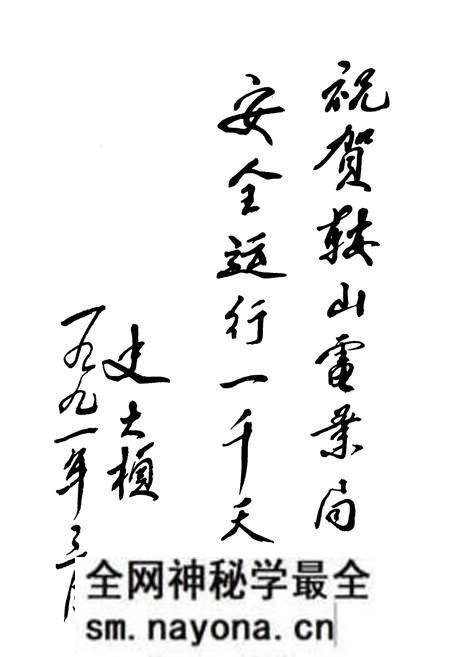 祝賀鞍山電業局
安全運行一千天
史大楨
一九九一年三月
全网神秘学最全
sm.nayona.cn